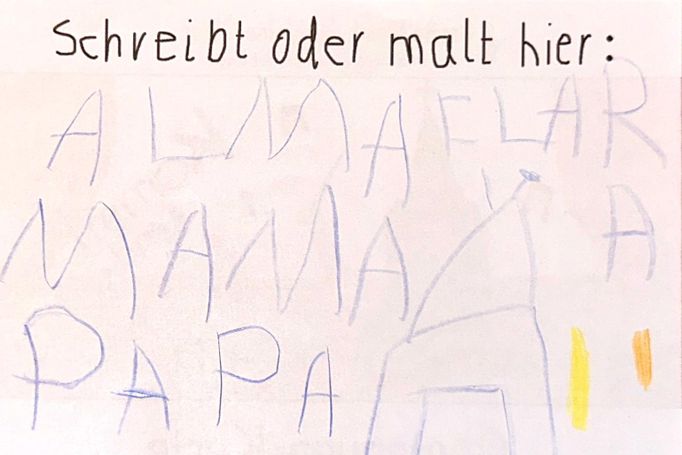 Schreibt oder malt hier:
ALMA
MAMA A
PAPA